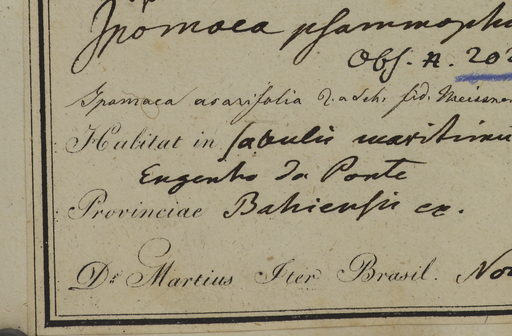 Ipomaea psammoph
Obs. n. 202
Ipomaea acarifolia fid. Meissner
Habitat in sabulis maritimis
Engenho da Ponte
Provinciae Bahiensis
Dr. Martius Iter Brasil. Nov